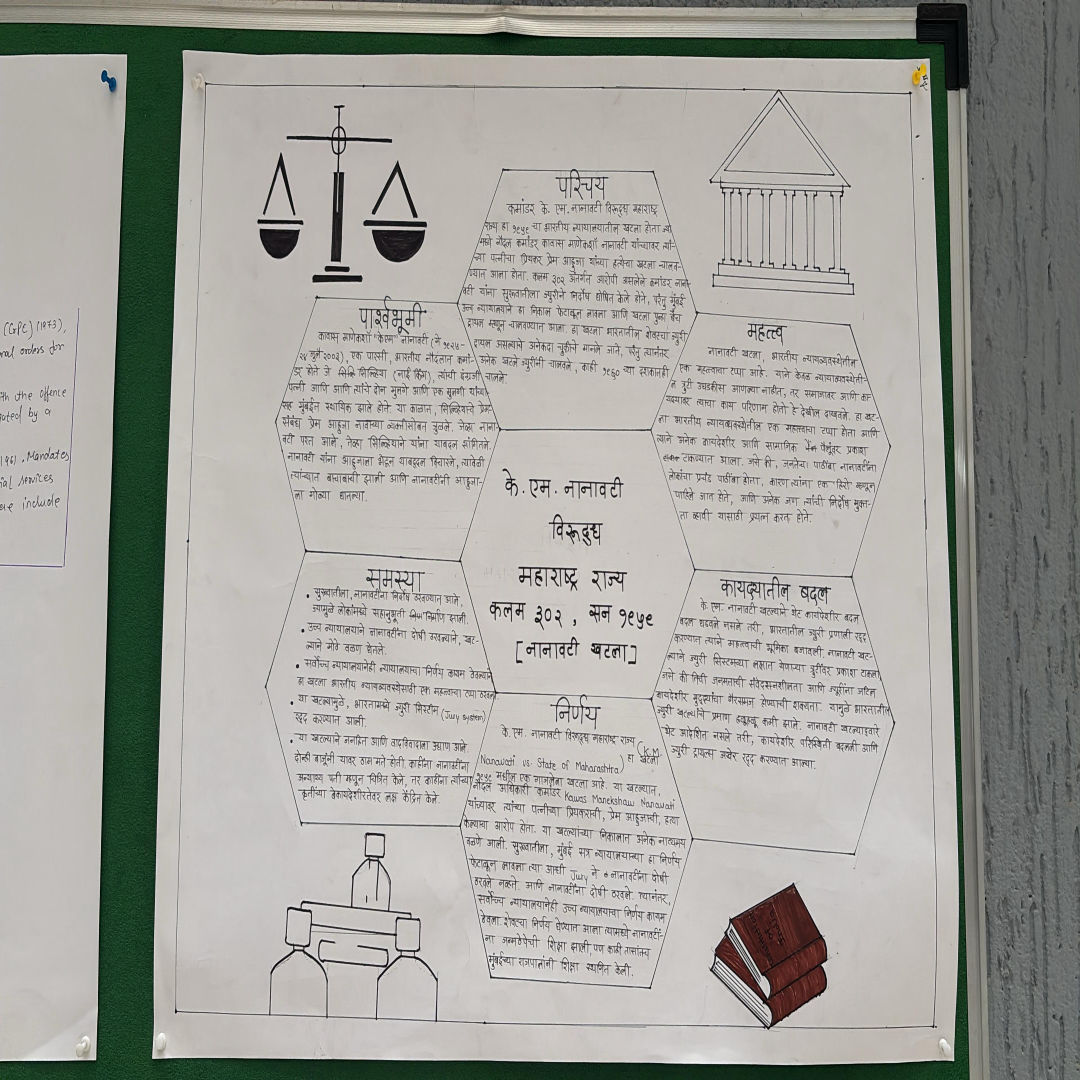 (CrPC) (1973),
ral orders for
th the offence
ated by a
1961. Mandates
ial services
are include
परिचय
कमांडर के. एम. नानावटी विरूद्ध महाराष्ट्र
राज्य हा १९५९ चा भारतीय न्यायालयातील खटला होता ज्या
मध्ये नौदल कमांडर कावास माणेकशॉ नानावटी यांच्यावर त्यां-
च्या पत्नीचा प्रियकर प्रेम आहुजा यांच्या हत्येचा खटला चालव-
ण्यात आला होता. कलम ३०२ अंतर्गत आरोपी असलेले कमांडर नाना-
वटी यांना सुरूवातीला ज्युरीने निर्दोष घोषित केले होते, परंतु मुंबई
उच्च न्यायालयाने हा निकाल फेटाळून लावला आणि खटला पुन्हा बेंच
ट्रायल म्हणून चालवण्यात आला. हा खटला भारतातील शेवटचा ज्युरी
ट्रायल असल्याचे अनेकदा चुकीचे मानले जाते, परंतु त्यानंतर
अनेक खटले ज्युरींनी चालवले, काही १९६० च्या दशकातही
चालले.
पार्श्वभूमी
कावास माणेकशॉ "केएम" नानावटी (ने १९२५-
२४ जुलै २००३), एक पारसी, भारतीय नौदलात कमां-
डर होते जे सिल्व्हिया (नाई किंग), त्यांची इंग्रजी
पत्नी आणि आणि त्यांचे दोन मुलगे आणि एक मुलगी यांच्या
सह मुंबईत स्थायिक झाले होते. या काळात, सिल्व्हियाचे प्रेम
संबंध प्रेम आहुजा नावाच्या व्यक्तीसोबत जुळले. जेव्हा नाना
वटी परत आले, तेव्हा सिल्व्हियाने यांना याबद्दल सांगितले.
नानावटी यांना आहुजाला भेटून याबद्दल विचारले, त्यावेळी
त्यांच्यात बाचाबाची झाली आणि नानावटींनी आहुजा-
ला गोळ्या घातल्या.
महत्त्व
नानावटी खटला, भारतीय न्यायव्यवस्थेतील
एक महत्त्वाचा टप्पा आहे. याने केवळ न्यायव्यवस्थेती-
ल त्रुटी उघडकीस आणल्या नाहीत, तर समाजावर आणि का-
यद्यावर त्याचा काय परिणाम होतो हे देखील दाखवले. हा खट-
ला भारतीय न्यायव्यवस्थेतील एक महत्त्वाचा टप्पा होता आणि
त्याने अनेक कायदेशीर आणि सामाजिक पैलूंवर प्रकाश
टाकण्यात आला. जसे की, जनतेचा पाठींबा नानावटींना
लोकांचा प्रचंड पाठींबा होता, कारण त्यांना एक 'हिरो' म्हणून
पाहिले जात होते, आणि अनेक जण त्यांची निर्दोष मुक्त-
ता व्हावी यासाठी प्रयत्न करत होते.
के. एम. नानावटी
विरूद्ध
महाराष्ट्र राज्य
कलम ३०२, सन १९५९
[नानावटी खटला]
समस्या
• सुरूवातीला, नानावटींना निर्दोष ठरवण्यात आले,
ज्यामुळे लोकांमध्ये सहानुभूती निर्माण झाली.
• उच्च न्यायालयाने नानावटींना दोषी ठरवल्याने, खट-
ल्याने मोठे वळण घेतले.
• सर्वोच्च न्यायालयानेही न्यायालयाचा निर्णय कायम ठेवल्याने
हा खटला भारतीय न्यायव्यवस्थेसाठी एक महत्त्वाचा टप्पा ठरवला
• या खटल्यामुळे, भारतामध्ये ज्युरी सिस्टीम (Jury system)
रद्द करण्यात आली.
• या खटल्याने जनहित आणि वादविवादाला उधाण आले.
दोन्ही बाजूंनी यावर ठाम मते होती काहींना नानावटींना
अन्याय्य पती म्हणून चित्रित केले, तर काहींना त्यांच्या
कृतींच्या बेकायदेशीरतेवर लक्ष केंद्रित केले.
कायद्यातील बदल
के. एम. नानावटी खटल्याने थेट कायदेशीर बदल
बदल घडवले नसले तरी, भारतातील ज्युरी प्रणाली रद्द
करण्यात त्याने महत्वाची भूमिका बजावली. नानावटी खट-
ल्याने ज्युरी सिस्टमच्या लक्षात येणाऱ्या त्रुटींवर प्रकाश टाकला
जसे की तिची जनमताची संवेदनशीलता आणि ज्युरींना जटिल
कायदेशीर मुद्द्यांचा गैरसमज होण्याची शक्यता. यामुळे भारतातील
ज्युरी खटल्यांचे प्रमाण हळूहळू कमी झाले. नानावटी खटल्याद्वारे
थेट आदेशित नसले तरी, कायदेशीर परिस्थिती बदलली आणि
ज्युरी ट्रायल्स अखेर रद्द करण्यात आल्या.
निर्णय
के. एम. नानावटी विरूद्ध महाराष्ट्र राज्य (K.M.
Nanavati vs. State of Maharashtra) हा खटला
१९५९ मधील एक गाजलेला खटला आहे. या खटल्यात,
नौदल अधिकारी कमांडर Kawas Manekshaw Nanavati
यांच्यावर त्यांच्या पत्नीच्या प्रियकराची, प्रेम आहुजाची, हत्या
केल्याचा आरोप होता. या खटल्याच्या निकालात अनेक नाट्यमय
वळणे आली. सुरूवातीला, मुंबई सत्र न्यायालयाच्या हा निर्णय
फेटाळून लावला त्या आधी Jury ने नानावटींना दोषी
ठरवले नव्हते. आणि नानावटींना दोषी ठरवले. त्यानंतर,
सर्वोच्च न्यायालयानेही उच्च न्यायालयाचा निर्णय कायम
ठेवला. शेवटचा निर्णय घेण्यात आला त्यामध्ये नानावटीं-
ना जन्मठेपेची शिक्षा झाली, पण काही तासांतच
मुंबईच्या राज्यपालांनी शिक्षा स्थगित केली.